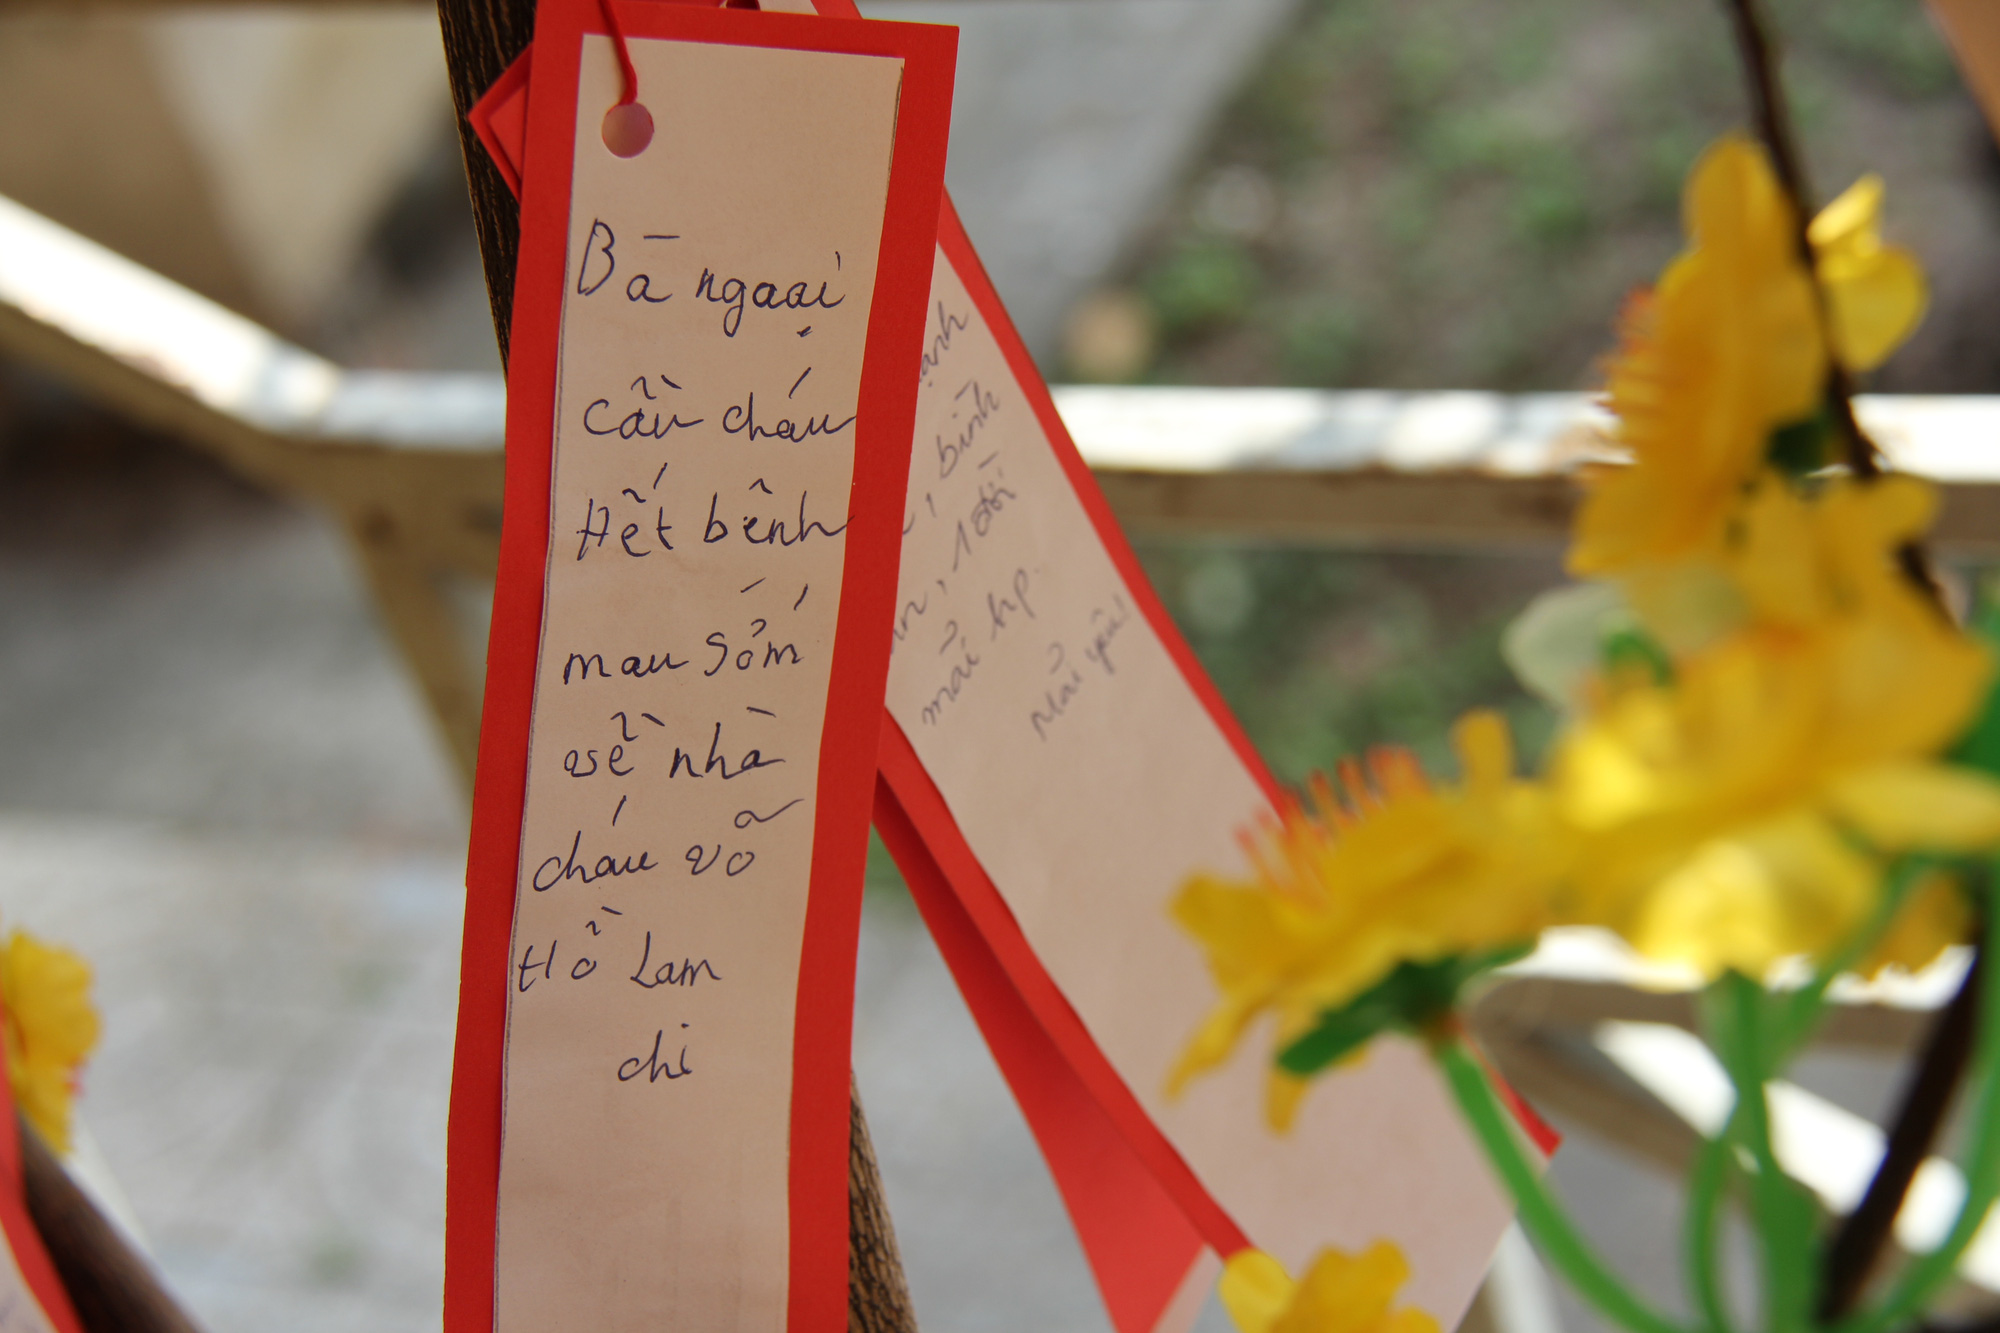 Bà ngoại
cầu cháu
Hết bệnh
mau sớm
về nhà
cháu võ
Hồ Lam
chi
bình
1 đời
mãi hp.
Mãi yêu!